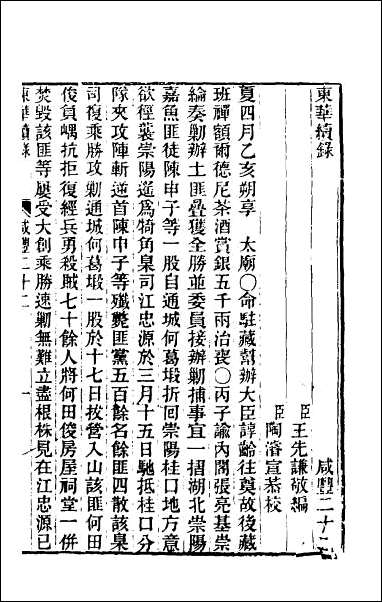 東華續錄　咸豐二十二
臣王先謙敬編
臣陶濬宣恭校
夏四月乙亥朔享　太廟○命駐藏幫辦大臣諄齡往奠故後藏
班禪額爾德尼茶酒賞銀五千兩治喪○丙子諭內閣張亮基崇
綸奏剿辦土匪疊獲全勝並委員接辦剿捕事宜一摺湖北崇陽
嘉魚匪徒陳申子等一股自通城何葛塅折回崇陽桂口地方意
欲徑襲崇陽遙為犄角臬司江忠源於三月十五日馳抵桂口分
隊夾攻陣斬逆首陳申子等殲斃匪黨五百餘名餘匪四散該臬
司復乘勝攻剿通城何葛塅一股於十七日拔營入山該匪何田
俊負嵎抗拒復經兵勇殺賊七十餘人將何田俊房屋祠堂一併
焚毀該匪等屢受大創乘勝速剿無難立盡根株見在江忠源已
東華續錄　咸豐二十二　一